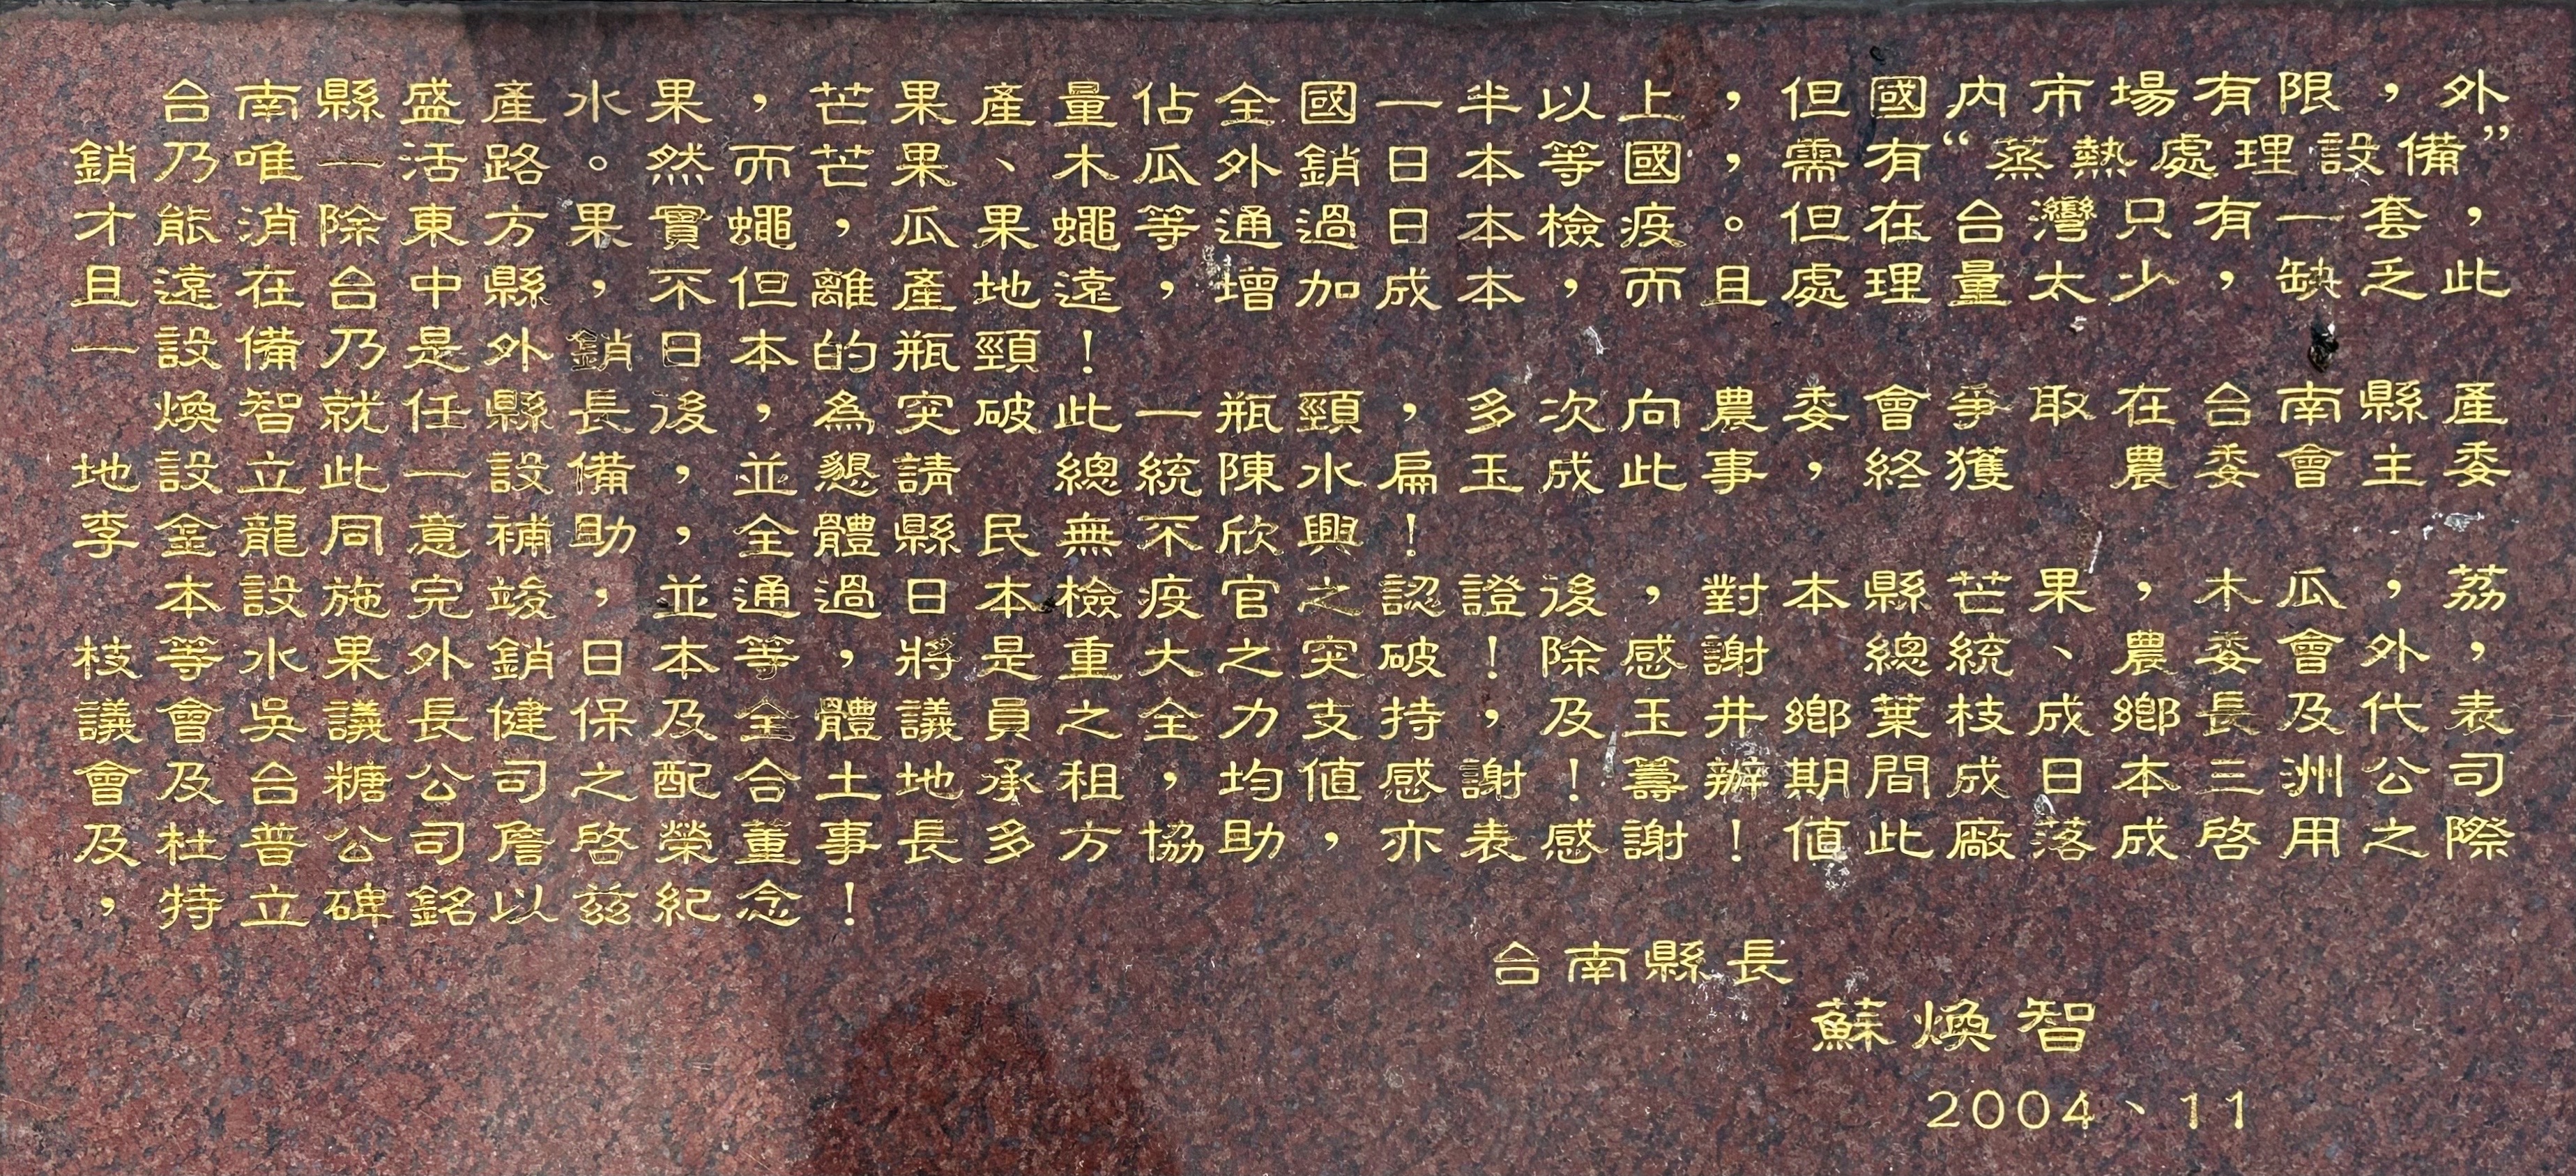 台南縣盛產水果，芒果產量佔全國一半以上，但國內市場有限，外
銷乃唯一活路。然而芒果、木瓜外銷日本等國，需有“蒸熱處理設備”
才能消除東方果實蠅，瓜果蠅等通過日本檢疫。但在台灣只有一套，
且遠在台中縣，不但離產地遠，增加成本，而且處理量太少，缺乏此
一設備乃是外銷日本的瓶頸！
煥智就任縣長後，為突破此一瓶頸，多次向農委會爭取在台南縣產
地設立此一設備，並懇請　總統陳水扁玉成此事，會終獲　農委會主委
李金龍同意補助，全體縣民無不欣興！
本設施完竣，並通過日本檢疫官之認證後，對本縣芒果，木瓜，荔
枝等水果外銷日本等，將是重大之突破！除感謝　總統、農委會外，
議會吳議長健保及全體議員之全力支持，及玉井鄉葉枝成鄉長及代表
會及台糖公司之配合土地承租，均值感謝！籌辦期間成日本三洲公司
及杜普公司詹啓榮董事長多方協助，亦表感謝！值此廠落成啓用之際
，特立碑銘以茲紀念！
台南縣長
蘇煥智
2004、11